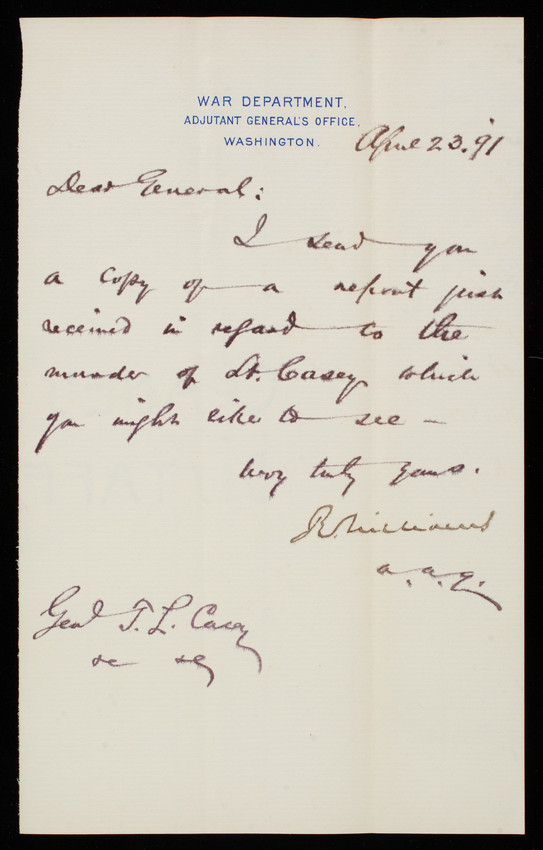 WAR DEPARTMENT,
ADJUTANT GENERAL'S OFFICE,
WASHINGTON.
April 23. '91
Dear General:
I send you
a copy of a report just
received in regard to the
murder of Lt. Casey which
you might like to see —
Very truly yours.
R. Williams
a. a. g.
Genl T. L. Casey